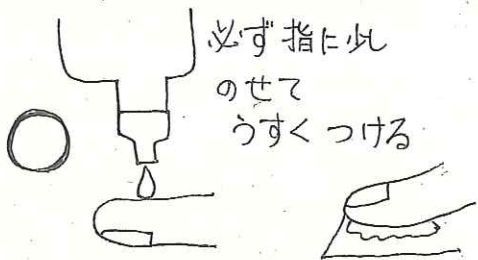 必ず指に少し
のせて
うすくつける